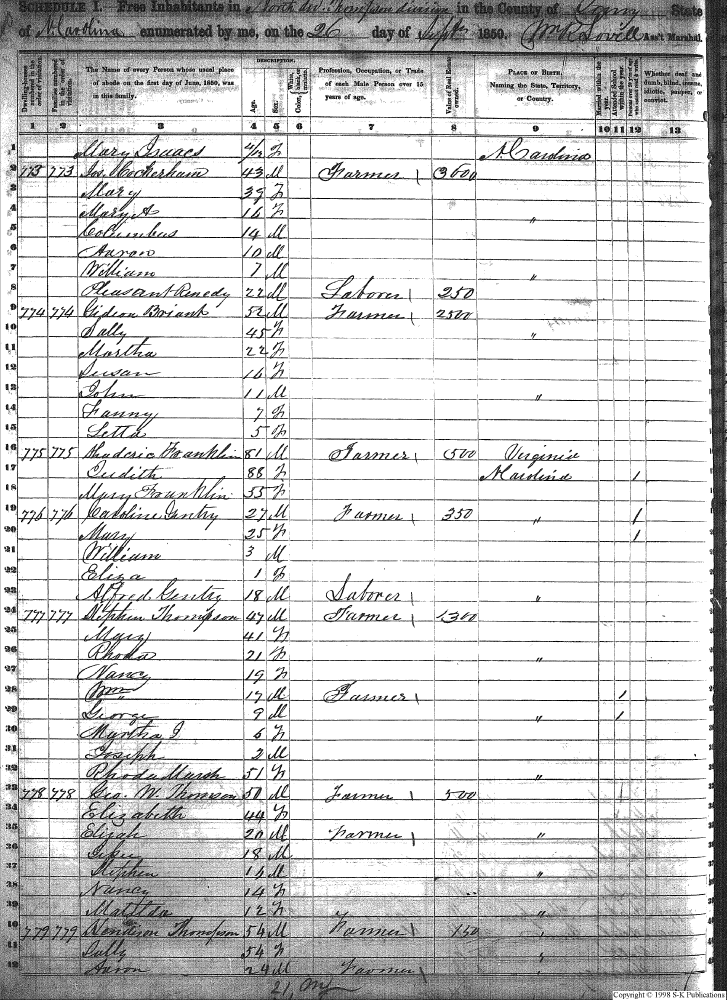 SCHEDULE I.—Free Inhabitants in North div. Thompson division in the County of Surry State
of N. Carolina enumerated by me, on the 26 day of Sept 1850. Ass't Marshal.
Dwelling-houses numbered in the order of visitation.
Families numbered in the order of visitation.
The Name of every Person whose usual place of abode on the first day of June, 1850, was in this family.
DESCRIPTION.
Age.
Sex.
Color, White, black, or mulatto.
Profession, Occupation, or Trade of each Male Person over 15 years of age.
Value of Real Estate owned.
PLACE OF BIRTH.
Naming the State, Territory, or Country.
Married within the year.
Attended School within the year.
Whether deaf and dumb, blind, insane, idiotic, pauper, or convict.
1 2 3 4 5 6 7 8 9 10 11 12 13
1 Mary Isaacs F N Carolina
2 773 773 Jas. Cockerham 43 M Farmer 3600
3 Mary 39 F
4 Mary A 16 F "
5 Columbus 14 M
6 Aaron 10 M
7 William 7 M "
8 Pleasant 22 M Laborer 250
9 774 774 Gideon Briant 52 M Farmer 2500
10 Sally 45 F "
11 Martha 22 F
12 Susan 16 F
13 John 11 M "
14 Fanny 7 F
15 Letta 5 F
16 775 775 Franklin 81 M Farmer 500 Virginia
17 Judith 88 F N Carolina 1
18 Mary Franklin 55 F
19 776 776 Caroline Gentry 27 M Farmer 350 " 1
20 Mary 25 F 1
21 William 3 M
22 Eliza 1 F
23 Alfred Gentry 18 M Laborer "
24 777 777 Stephen Thompson 47 M Farmer 1300
25 Mary 41 F
26 Rhoda 21 F "
27 Nancy 19 F
28 Wm 17 M Farmer 1
29 George 9 M " 1
30 Martha J 6 F
31 Joseph 2 M
32 Rhoda Marsh 51 F "
33 778 778 Geo. W. Thomson 50 M Farmer 500 1
34 Elizabeth 44 F
35 Elijah 20 M Farmer "
36 18 M
37 Stephen M "
38 Nancy 14 F
39 Matilda 12 F "
40 779 779 Thompson 54 M Farmer 150
41 Sally 54 F
42 Aaron 24 M Farmer
21
Copyright © 1998 S-K Publications